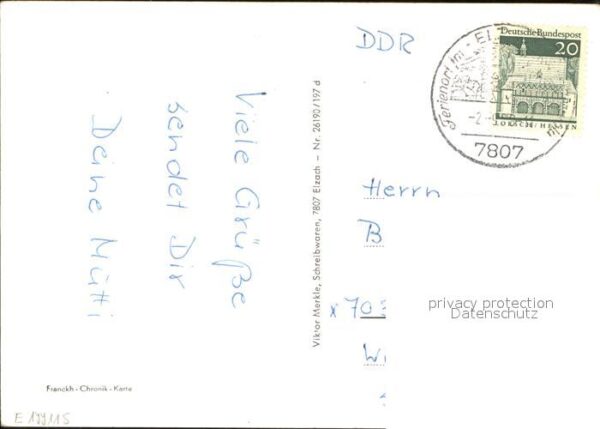 DDR
Deutsche Bundespost
20
LORSCH/HESSEN
Ferienort im
7807
Viele Grüße
sendet Dir
Deine Mutti
Viktor Merkle, Schreibwaren, 7807 Elzach – Nr. 26190/197 d
Herrn
B
x 70
W
privacy protection
Datenschutz
Franckh-Chronik-Karte
E199115